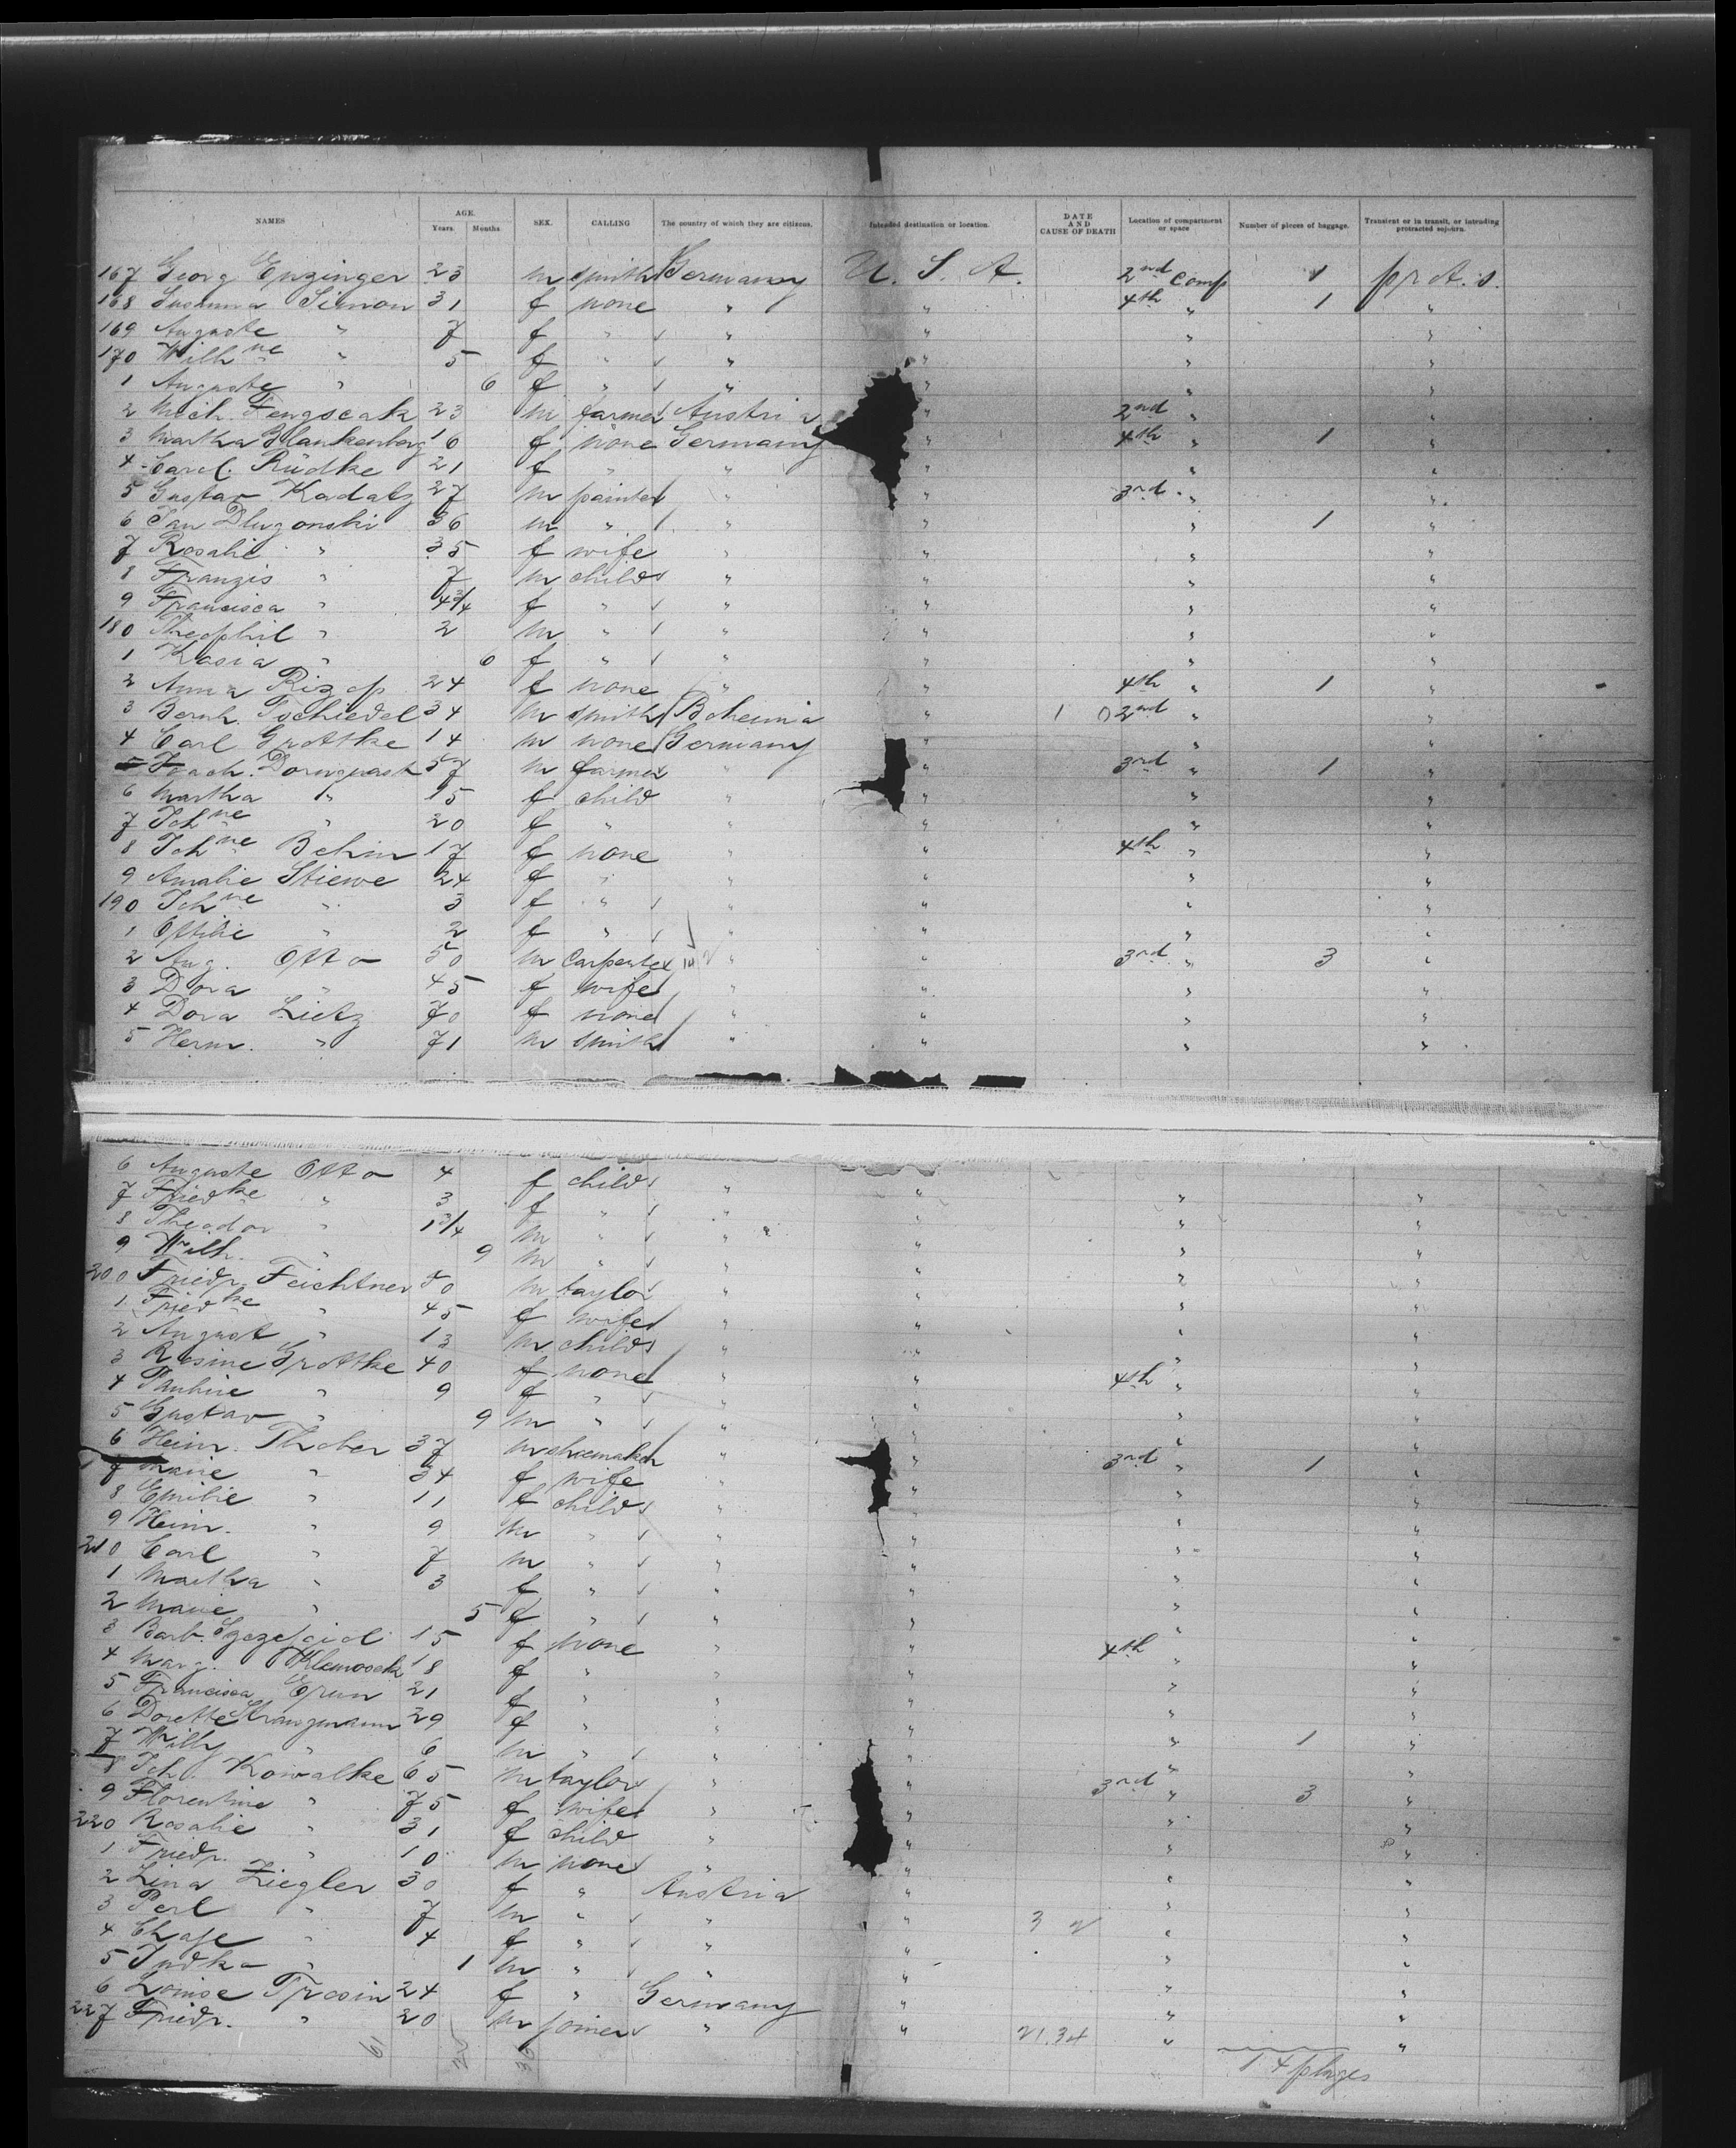 NAMES AGE. Years. Months. SEX. CALLING The country of which they are citizens. Intended destination or location. DATE AND CAUSE OF DEATH Location of compartment or space Number of pieces of baggage. Transient or in transit, or intending protracted sojourn.
167 Georg Enzinger 23 m smith Germany U. S. A. 2nd Comp 1 prot. s.
168 Susanna Simon 31 f none " " 4th " 1 "
169 Auguste " 7 f " " " " "
170 Wilhne " 5 f " " " " "
1 Auguste " 6 f " " " " "
2 Mich. 23 m farmer Austria " 2nd " "
3 Martha Blankenberg 16 f none Germany " 4th " 1 "
4 Carol. Rüdke 21 f " " " " "
5 Gustav Kadatz 27 m painter " " 3rd " "
6 Jan Dlugonski 36 m " " " " 1 "
7 Rosalie " 35 f wife " " " "
8 Franzis " 7 m child " " " "
9 Francisca " 4 3/4 f " " " " "
180 Theophil " 2 m " " " " "
1 Kasia " 6 f " " " " "
2 Anna Rizop 24 f none " " 4th " 1 "
3 Bernh. Tschiedel 34 m smith Bohemia " 1 0 2nd " "
4 Carl Grottke 14 m none Germany " " "
5 Joach. Dornquast 57 m farmer " " 3rd " 1 "
6 Martha " 15 f child " " " "
7 Johne " 20 f " " " " "
8 Johne Behm 17 f none " " 4th " "
9 Amalie Stiewe 24 f " " " " "
190 Johne " 3 f " " " " "
1 Ottilie " 2 f " " " " "
2 Aug. Otto 50 m carpenter " " 3rd " 3 "
3 Dora " 45 f wife " " " "
4 Dora Lietz 70 f none " " " "
5 Herm. " 71 m smith " " " "
6 Auguste Otto 4 f child " " " "
7 Friedke " 3 f " " " " "
8 Theodor " 1 3/4 m " " " " "
9 Wilh. " 9 m " " " " "
200 Friedr. Feichtner 50 m taylor " " " "
1 Friedke " 45 f wife " " " "
2 August " 13 m child " " " "
3 Rosine Grottke 40 f none " " 4th " "
4 Pauline " 9 f " " " " "
5 Gustav " 9 m " " " " "
6 Heinr. Thober 37 m shoemaker " " 3rd " 1 "
7 Marie " 34 f wife " " " "
8 Emilie " 11 f child " " " "
9 Heinr. " 9 m " " " " "
210 Carl " 7 m " " " " "
1 Martha " 3 f " " " " "
2 Marie " 5 f " " " " "
3 Barb. 15 f none " " 4th " "
4 Marg. 18 f " " " " "
5 Francisca 21 f " " " " "
6 Dorette 29 f " " " " 1 "
7 Willy " 6 m " " " " "
8 Joh. Kowalke 65 m taylor " " 3rd " 3 "
9 Florentine " 75 f wife " " " "
220 Rosalie " 31 f child " " " "
1 Friedr. " 10 m none " " " "
2 Lina Ziegler 30 f " Austria " " "
3 Perl " 7 m " " " " "
4 Chaje " 4 f " " " " "
5 Judka " 1 m " " " " "
6 Louise 24 f " Germany " " "
227 Friedr. " 20 m joiner " " " "